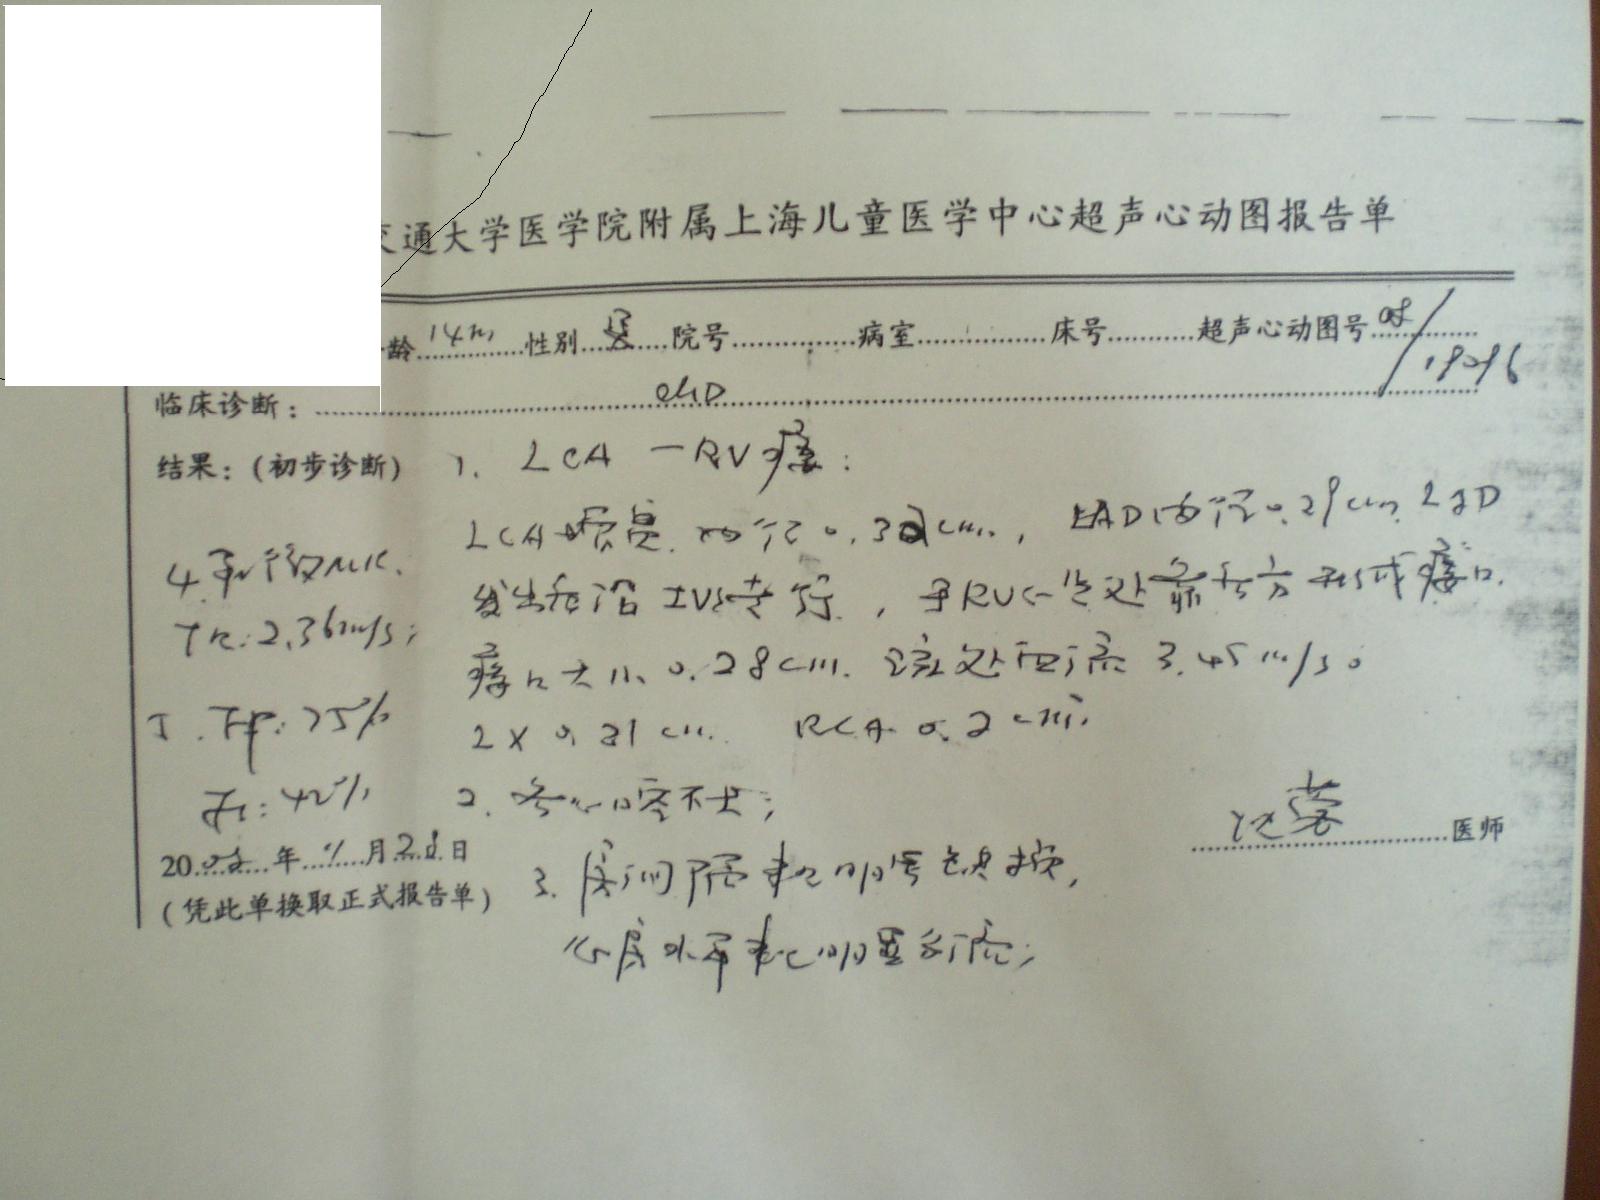 交通大学医学院附属上海儿童医学中心超声心动图报告单
龄 14m 性别 男 院号 病室 床号 超声心动图号 08/19096
临床诊断： CHD
结果：(初步诊断) 1. LCA－RV瘘：
LCA 增宽. 内径0.32cm, LAD内径0.29cm. LAD
发出后沿IVS走行, 于RV心尖处靠右方形成瘘口.
瘘口大小 0.28cm. 该处血流 3.45m/s。
LX 0.21cm. RCA 0.2cm.
2. 各心腔不大；
3. 房间隔未见明显缺损,
心房水平未见明显分流；
4. 轻微MR.
TR: 2.36m/s;
5. EF: 75%
FS: 42%
2008年11月28日
(凭此单换取正式报告单)
医师